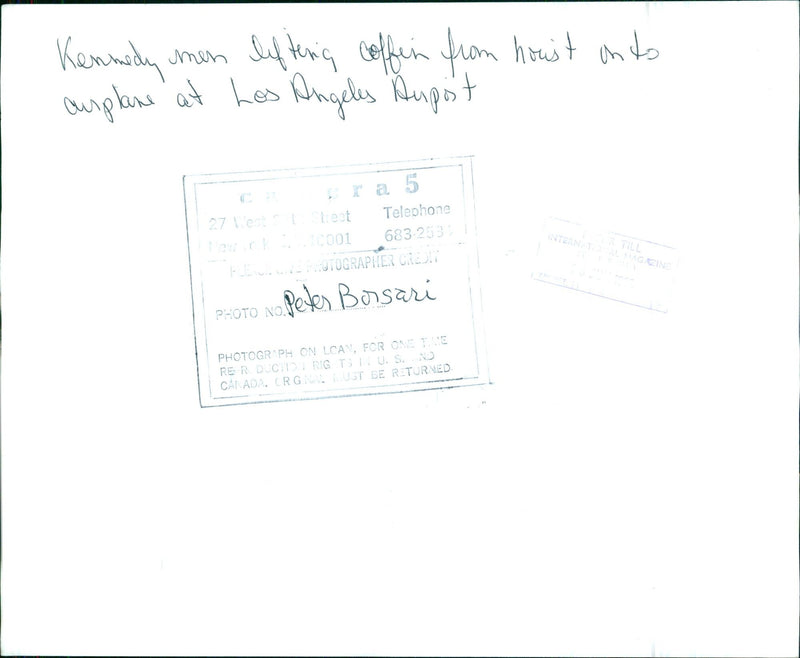 Kennedy men lifting coffin from hoist onto
airplane at Los Angeles Airport
gra 5
27 West Street Telephone
10001 683-253
PHOTOGRAPHER CREDIT
PHOTO NO. Peter Borsari
PHOTOGRAPH ON LOAN, FOR ONE TIME
RIGHTS IN U. S. AND
CANADA. MUST BE RETURNED
TILL
INTERNATIONAL MAGAZINE